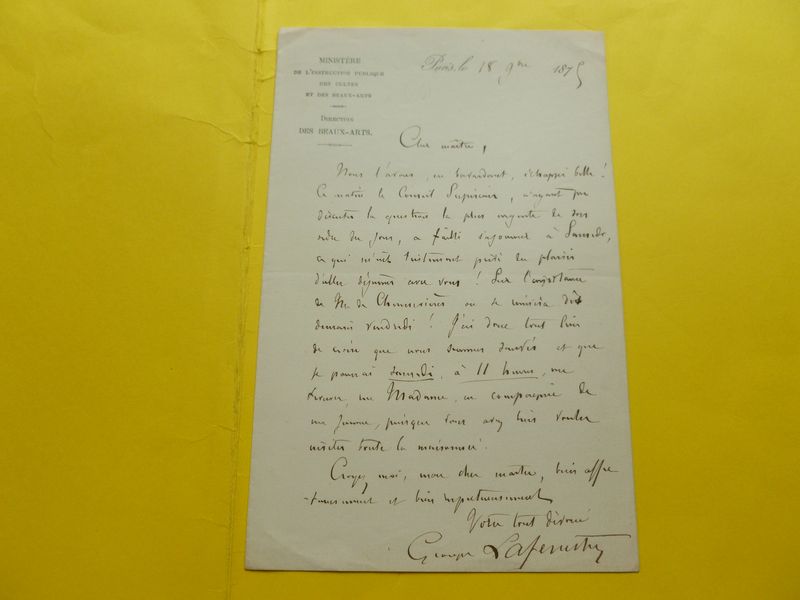 MINISTÈRE
DE L'INSTRUCTION PUBLIQUE
DES CULTES
ET DES BEAUX-ARTS
DIRECTION
DES BEAUX-ARTS.
Paris, le 18 9bre 1875
Cher maître,
Nous l'avons, en, échappé belle !
Ce matin le Conseil Supérieur, n'ayant pu
discuter la question la plus urgente de son
ordre du jour, a failli s'ajourner à Samedi,
ce qui m'eût tristement privé du plaisir
d'aller déjeuner avec vous ! Sur l'insistance
de M. de Chennevières on se réunira dès
demain vendredi ! J'ai donc tout lieu
de croire que nous sommes sauvés et que
je pourrai samedi, à 11 heures, me
trouver, chez Madame, en compagnie de
ma femme, puisque vous avez bien voulu
inviter toute la maisonnée.
Croyez moi, mon cher maître, bien affec
-tueusement et bien respectueusement
Votre tout dévoué
George Lafenestre